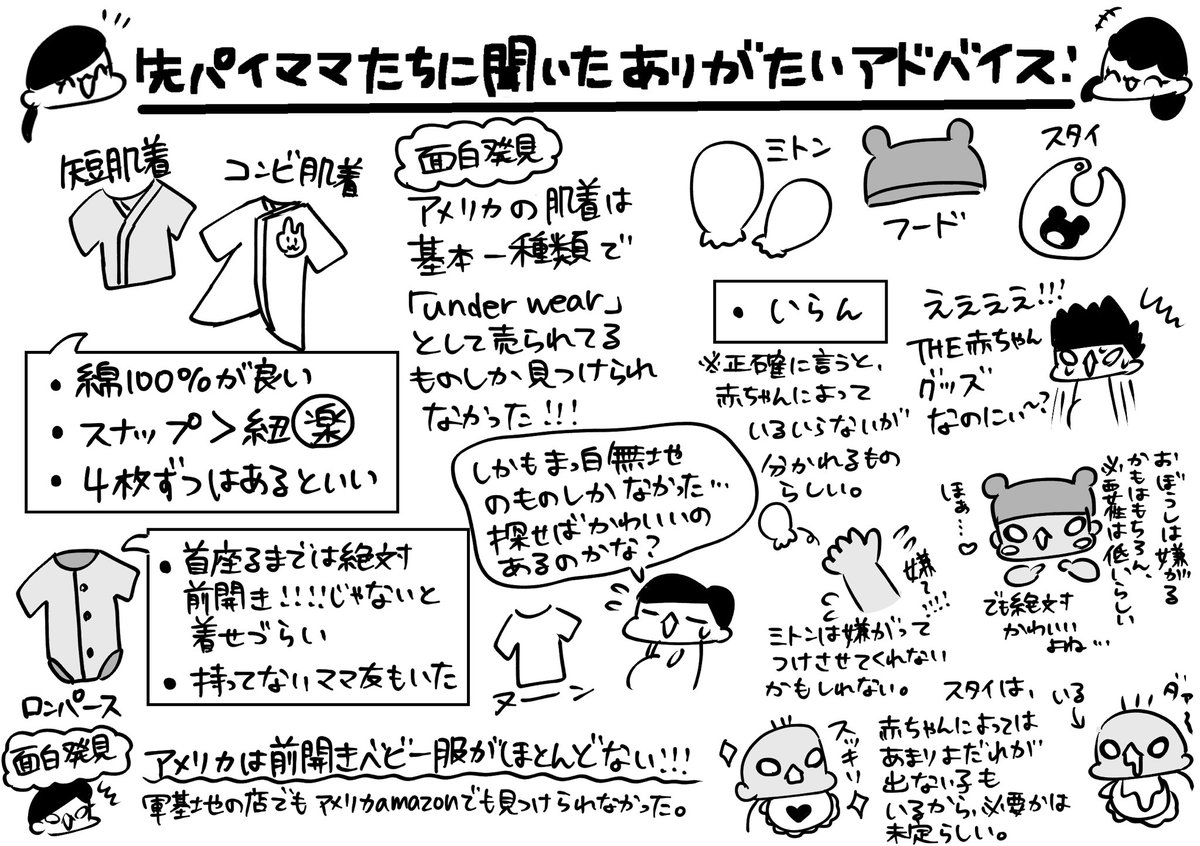 先パイママたちに聞いたありがたいアドバイス!
短肌着
コンビ肌着
・綿100%が良い
・スナップ>紐 楽
・4枚ずつはあるといい
面白発見
アメリカの肌着は
基本一種類で
「under wear」
として売られてる
ものしか見つけられ
なかった!!!
しかもまっ白無地
のものしかなかった…
探せばかわいいの
あるのかな?
ヌーン
ロンパース
・首座るまでは絶対
前開き!!!!じゃないと
着せづらい
・持ってないママ友もいた
面白発見
アメリカは前開きベビー服がほとんどない!!!
軍基地の店でもアメリカamazonでも見つけられなかった。
ミトン
フード
スタイ
・いらん
※正確に言うと、
赤ちゃんによって
いるいらないが
分かれるもの
らしい。
ええええ!!!
THE赤ちゃん
グッズ
なのにぃ〜?
嫌て!!!!
ミトンは嫌がって
つけさせてくれない
かもしれない。
おぼうしは嫌がる
かもはもちろん、
必要性は低いらしい
ほぁ…♡
でも絶対
かわいい
よね…
スタイは、
赤ちゃんによっては
あまりよだれが
出ない子も
いるから、必要かは
未定らしい。
スッキリ
いる
ダァ〜